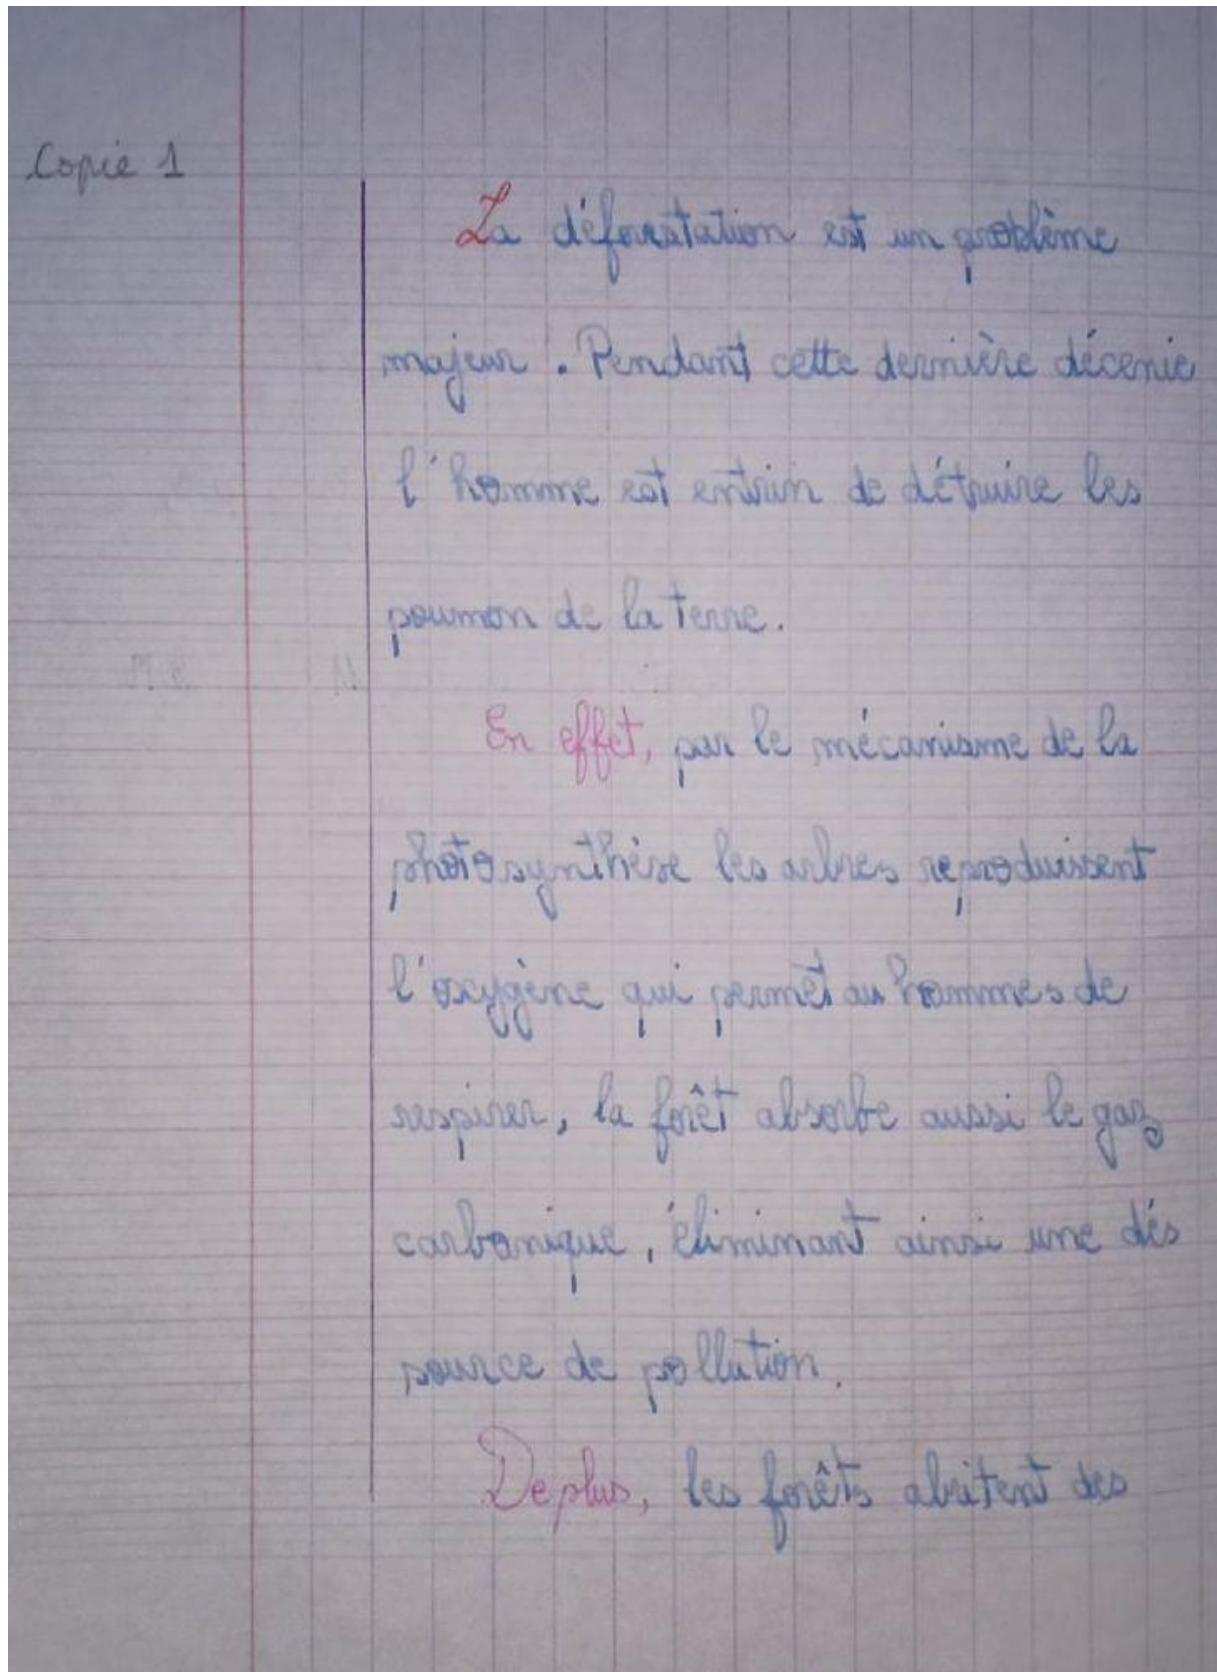 Copie 1
La déforestation est un problème
majeur. Pendant cette dernière décenie
l'homme est entrin de détruire les
poumon de la terre.
En effet, par le mécanisme de la
photosynthèse les arbres reproduisent
l'oxygène qui permet au hommes de
respirer, la forêt absorbe aussi le gaz
carbonique, éliminant ainsi une dés
source de pollution.
De plus, les forêts abritent des